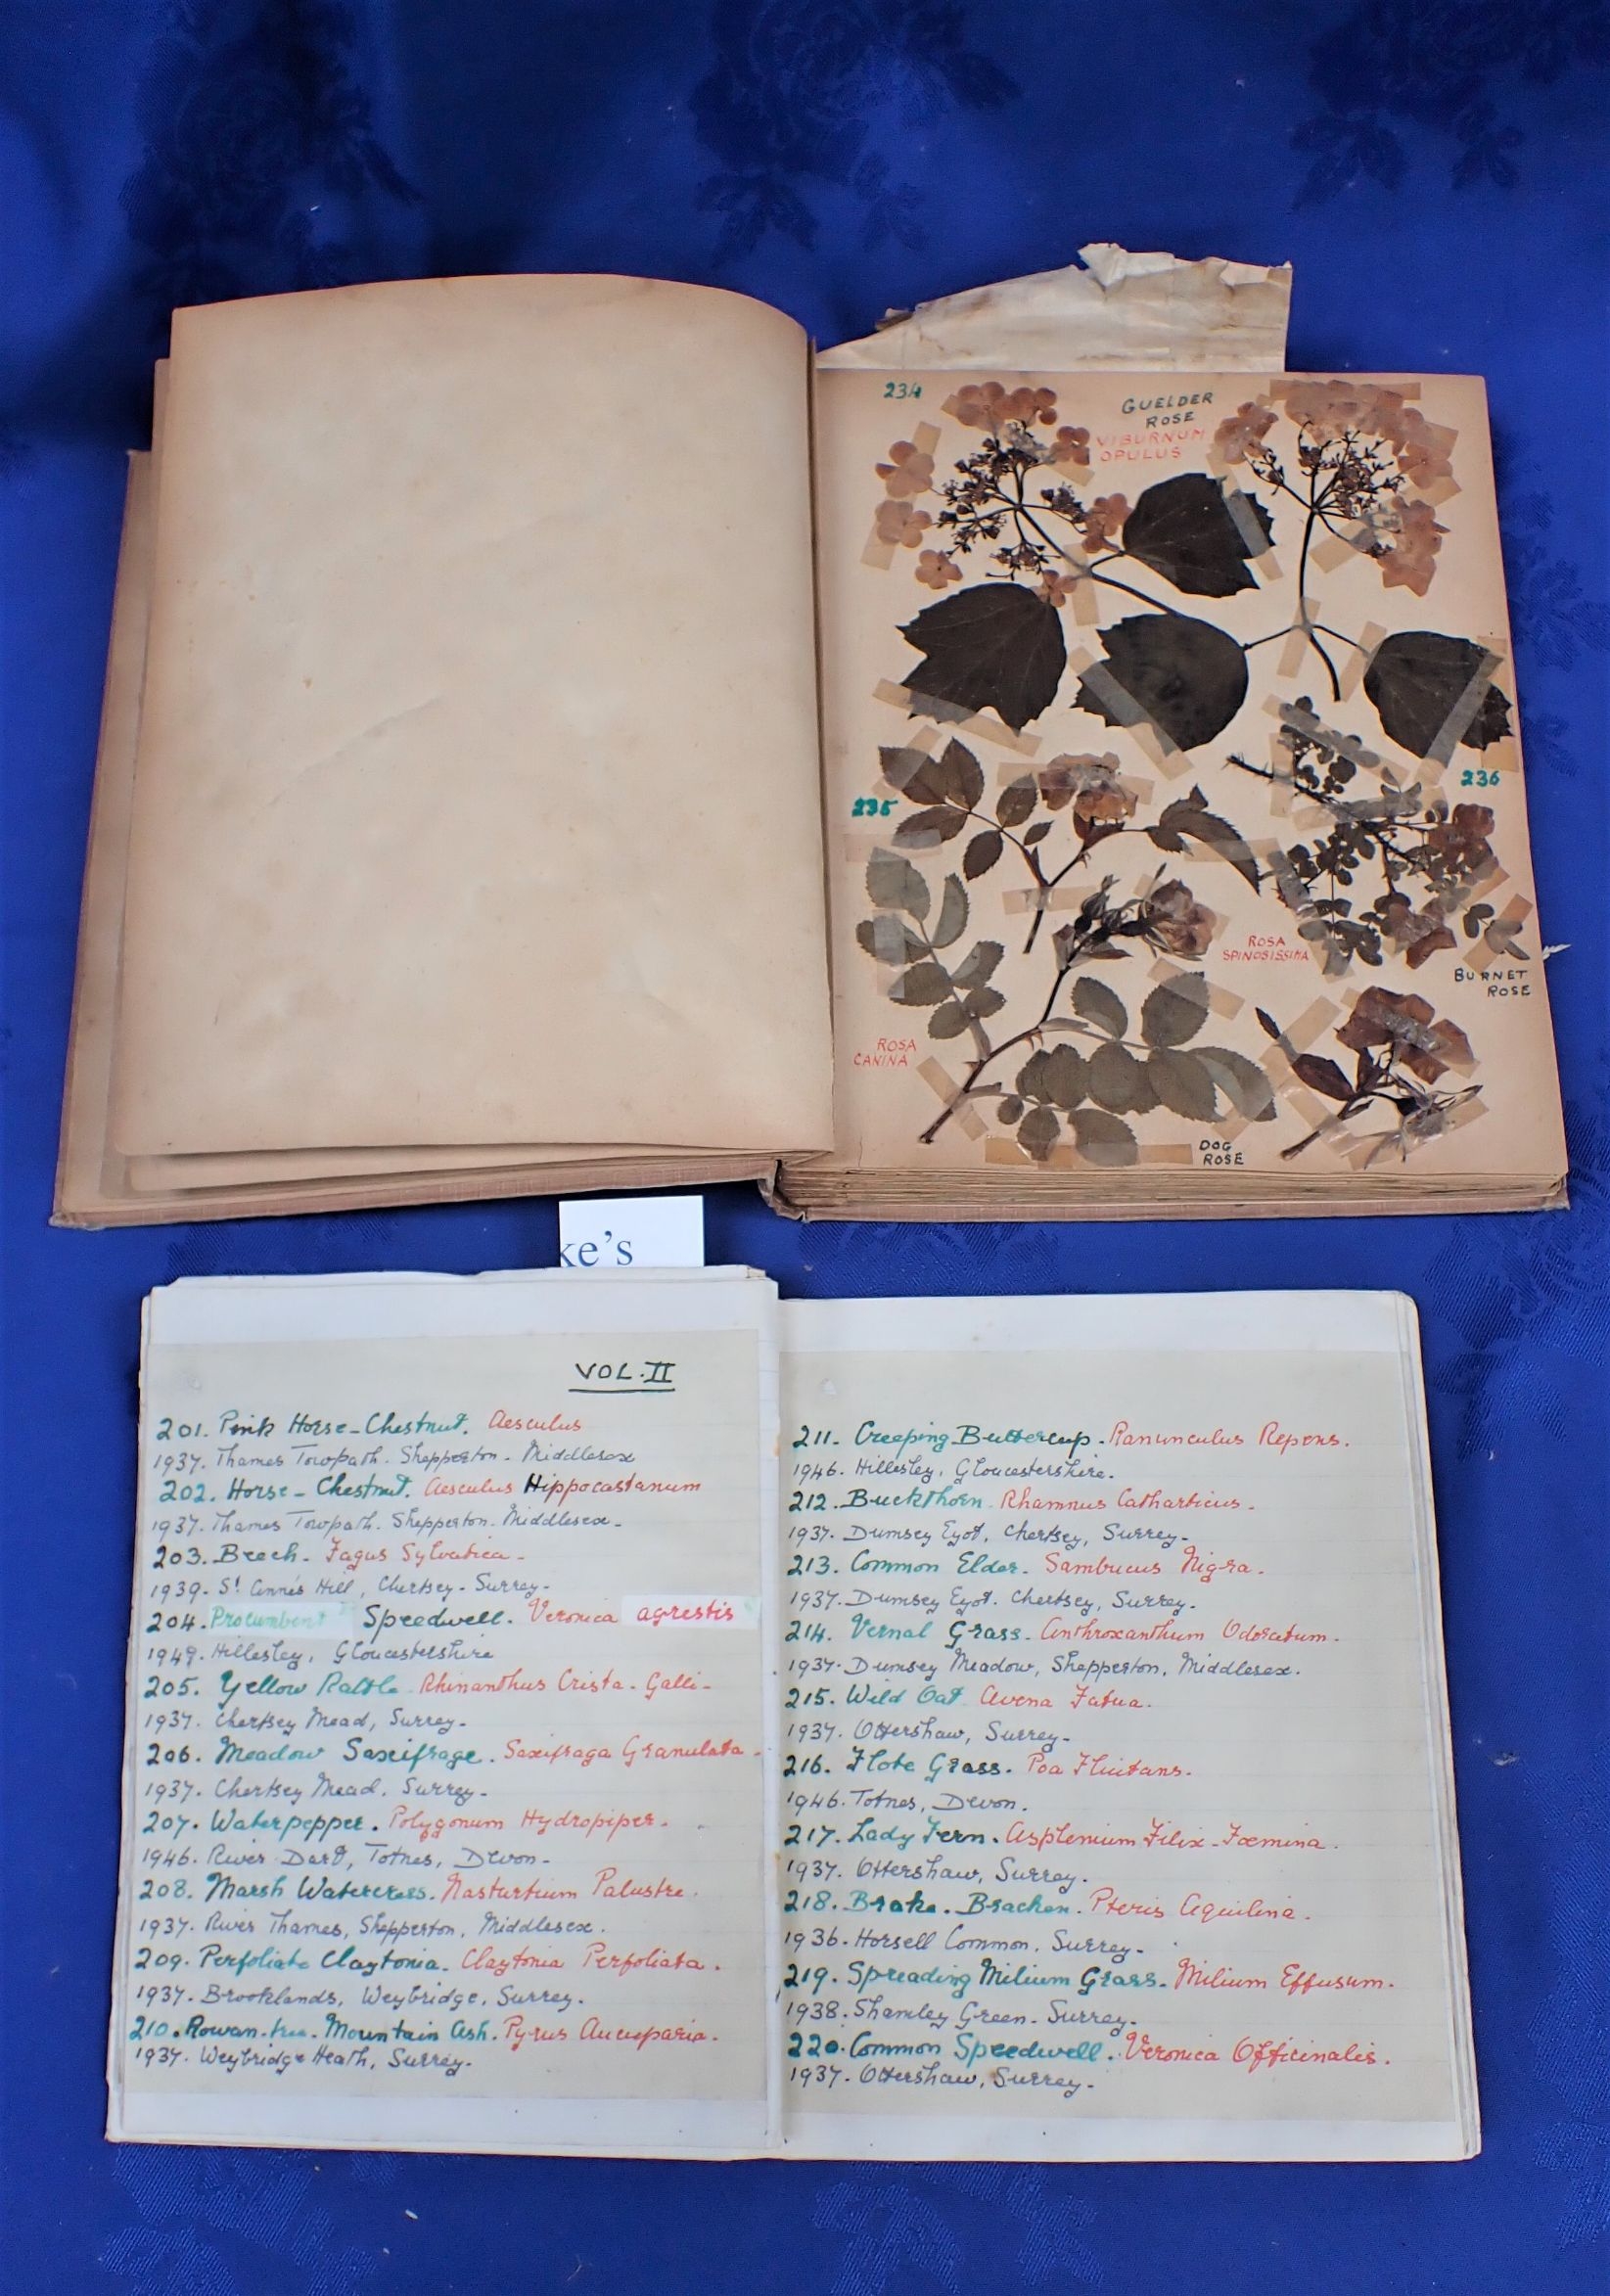 234
GUELDER
ROSE
VIBURNUM
OPULUS
235
236
ROSA
SPINOSISSIMA
BURNET
ROSE
ROSA
CANINA
DOG
ROSE
ke's
VOL. II
201. Pink Horse-Chestnut. Aesculus
1937. Thames Towpath. Shepperton. Middlesex
202. Horse-Chestnut. Aesculus Hippocastanum
1937. Thames Towpath. Shepperton. Middlesex.
203. Beech. Fagus Sylvatica.
1939. St Anne's Hill, Chertsey. Surrey.
204. Procumbent Speedwell. Veronica agrestis
1949. Hillesley, Gloucestershire
205. Yellow Rattle. Rhinanthus Crista-Galli.
1937. Chertsey Mead, Surrey.
206. Meadow Saxifrage. Saxifraga Granulata.
1937. Chertsey Mead. Surrey.
207. Waterpepper. Polygonum Hydropiper.
1946. River Dart, Totnes, Devon.
208. Marsh Watercress. Nasturtium Palustre.
1937. River Thames, Shepperton, Middlesex.
209. Perfoliate Claytonia. Claytonia Perfoliata.
1937. Brooklands, Weybridge, Surrey.
210. Rowan-tree. Mountain Ash. Pyrus Aucuparia.
1937. Weybridge Heath, Surrey.
211. Creeping Buttercup. Ranunculus Repens.
1946. Hillesley, Gloucestershire.
212. Buckthorn. Rhamnus Catharticus.
1937. Dumsey Eyot, Chertsey, Surrey.
213. Common Elder. Sambucus Nigra.
1937. Dumsey Eyot. Chertsey, Surrey.
214. Vernal Grass. Anthroxanthum Odoratum.
1937. Dumsey Meadow, Shepperton, Middlesex.
215. Wild Oat. Avena Fatua.
1937. Ottershaw, Surrey.
216. Flote Grass. Poa Fluitans.
1946. Totnes, Devon.
217. Lady Fern. Asplenium Filix-Foemina.
1937. Ottershaw, Surrey.
218. Brake. Bracken. Pteris Aquilina.
1936. Horsell Common, Surrey.
219. Spreading Milium Grass. Milium Effusum.
1938. Shamley Green. Surrey.
220. Common Speedwell. Veronica Officinalis.
1937. Ottershaw, Surrey.